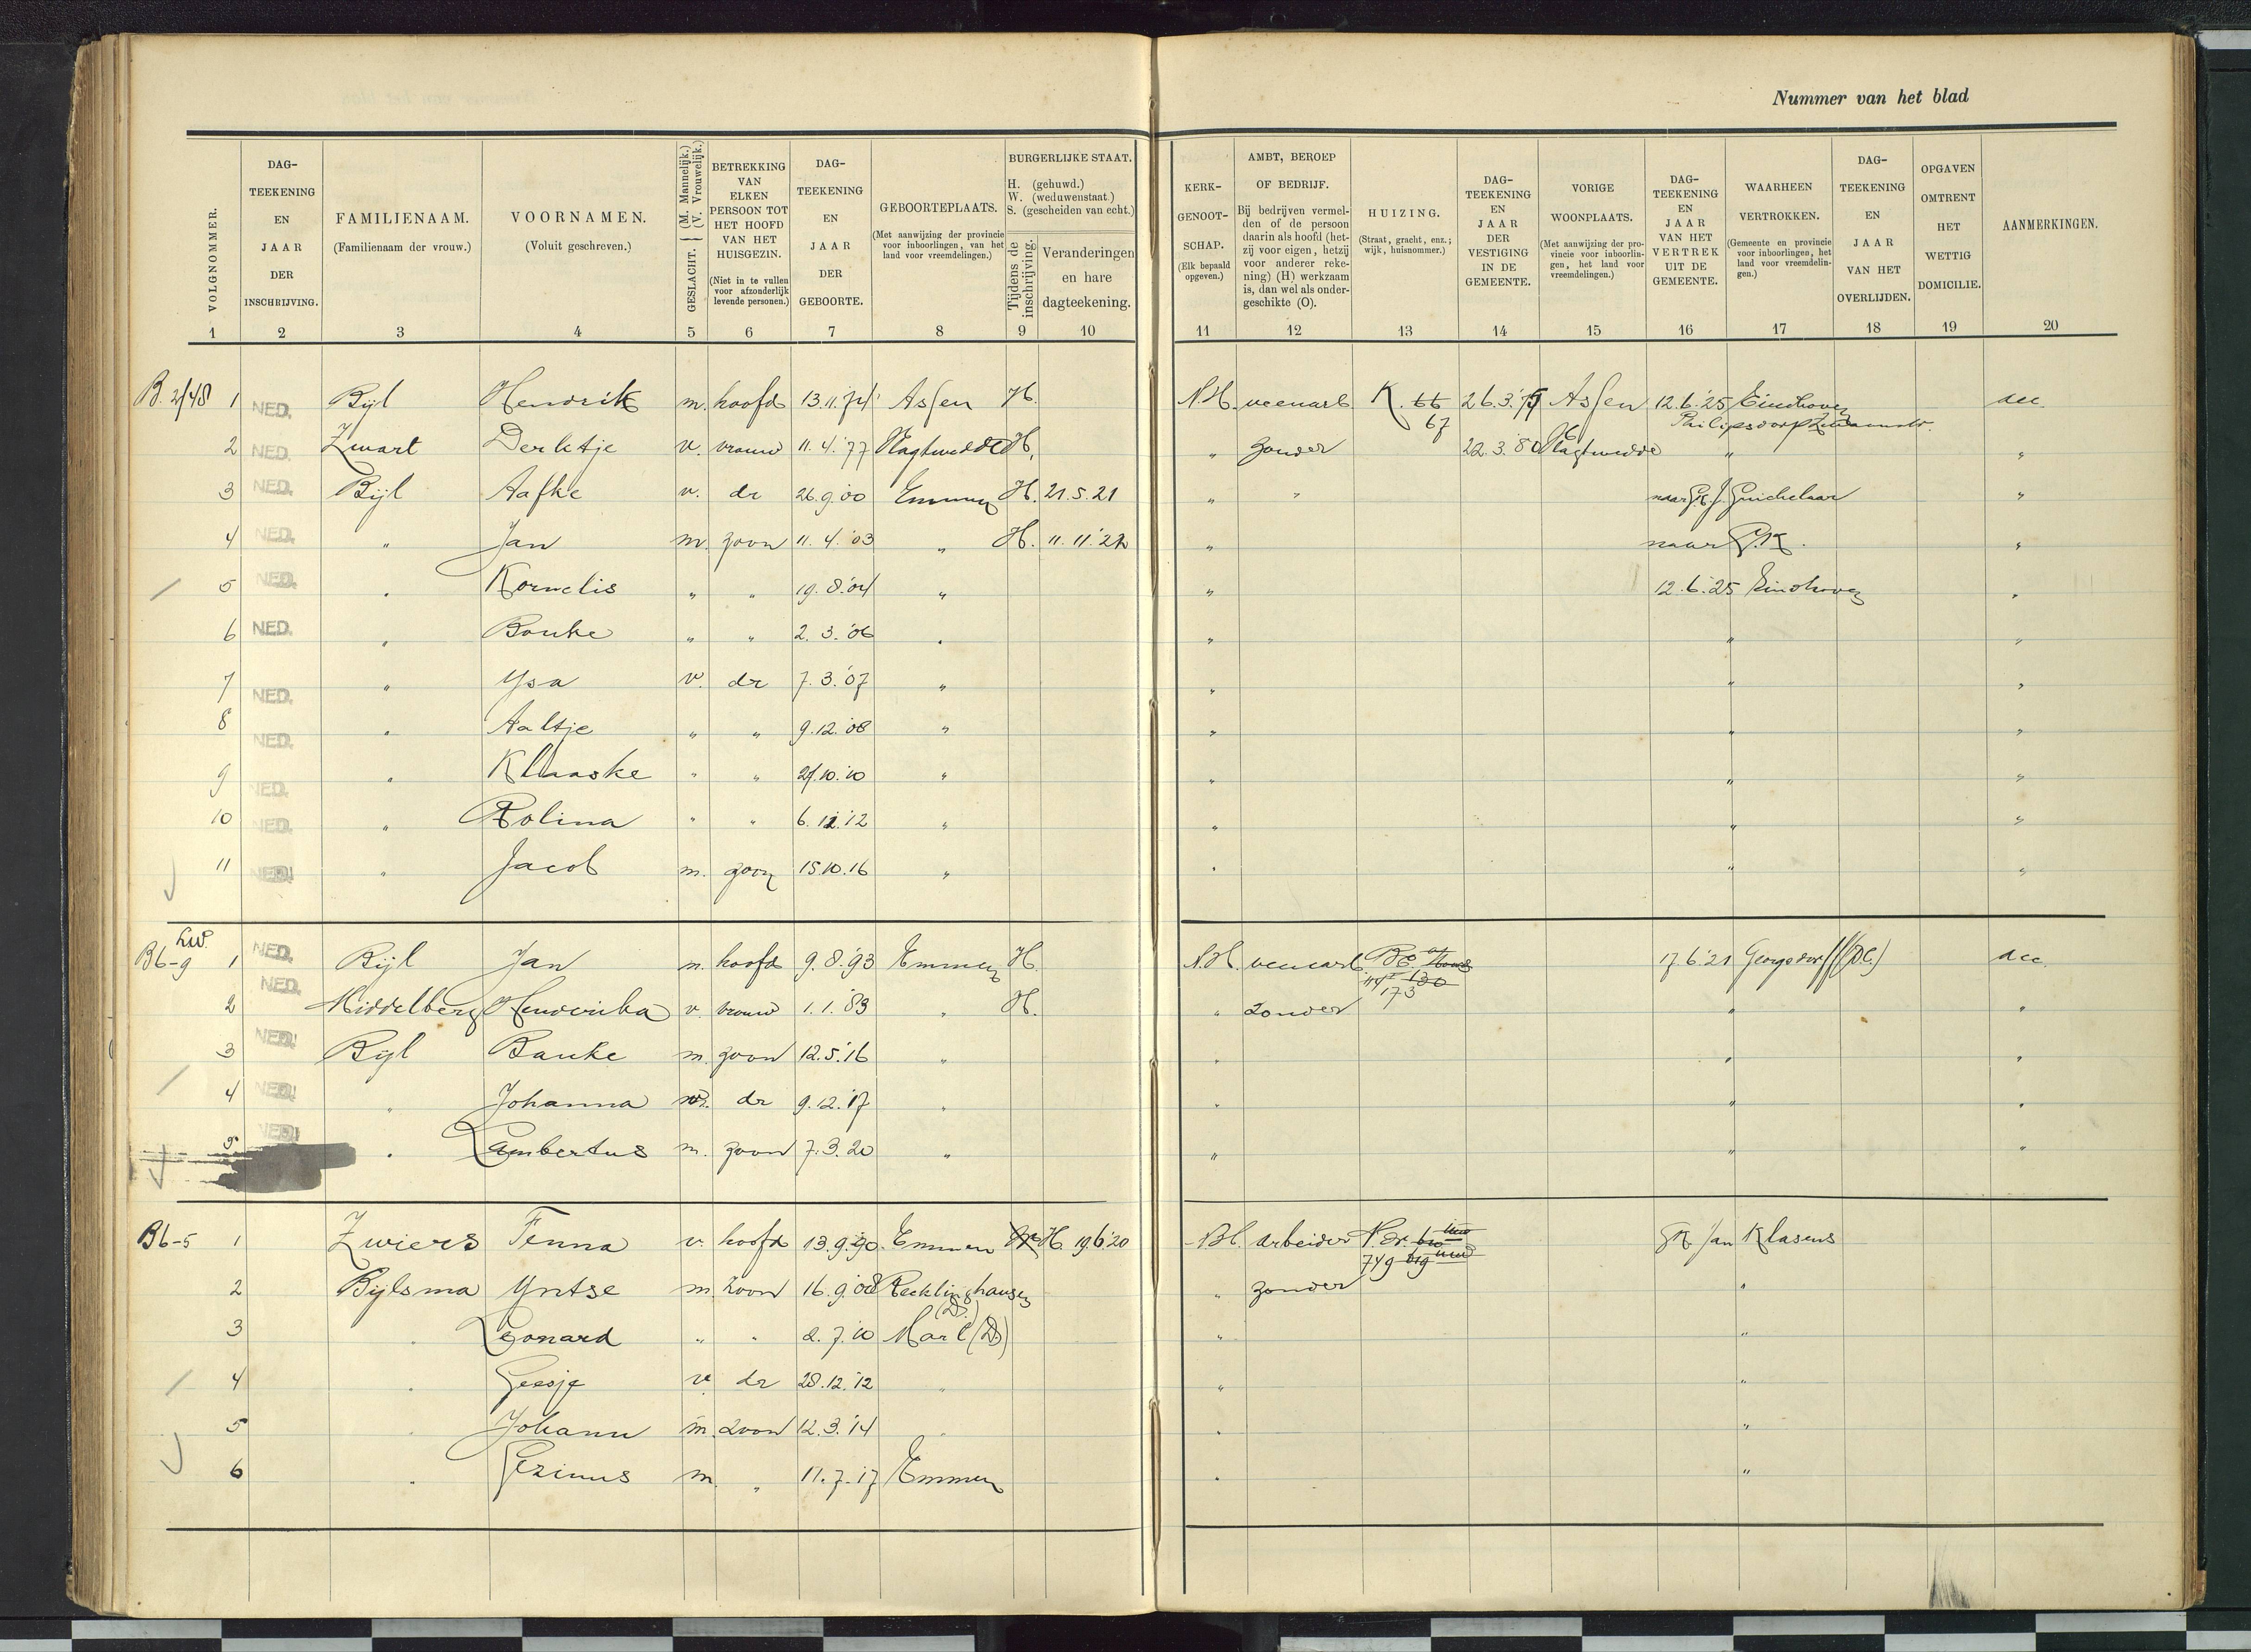 Nummer van het blad
VOLGNOMMER. DAG-TEEKENING EN JAAR DER INSCHRIJVING. FAMILIENAAM. (Familienaam der vrouw.) VOORNAMEN. (Voluit geschreven.) GESLACHT. (M. Mannelijk.) (V. Vrouwelijk.) BETREKKING VAN ELKEN PERSOON TOT HET HOOFD VAN HET HUISGEZIN. (Niet in te vullen voor afzonderlijk levende personen.) DAG-TEEKENING EN JAAR DER GEBOORTE. GEBOORTEPLAATS. (Met aanwijzing der provincie voor inboorlingen, van het land voor vreemdelingen.) BURGERLIJKE STAAT. H. (gehuwd.) W. (weduwenstaat.) S. (gescheiden van echt.) Tijdens de inschrijving. Veranderingen en hare dagteekening.
KERK-GENOOT-SCHAP. (Elk bepaald opgeven.) AMBT, BEROEP OF BEDRIJF. Bij bedrijven vermelden of de persoon daarin als hoofd (hetzij voor eigen, hetzij voor anderer rekening) (H) werkzaam is, dan wel als ondergeschikte (O). HUIZING. (Straat, gracht, enz.; wijk, huisnommer.) DAG-TEEKENING EN JAAR DER VESTIGING IN DE GEMEENTE. VORIGE WOONPLAATS. (Met aanwijzing der provincie voor inboorlingen, het land voor vreemdelingen.) DAG-TEEKENING EN JAAR VAN HET VERTREK UIT DE GEMEENTE. WAARHEEN VERTROKKEN. (Gemeente en provincie voor inboorlingen, het land voor vreemdelingen.) DAG-TEEKENING EN JAAR VAN HET OVERLIJDEN. OPGAVEN OMTRENT HET WETTIG DOMICILIE. AANMERKINGEN.
1 2 3 4 5 6 7 8 9 10 11 12 13 14 15 16 17 18 19 20
B. 2/48 1 NED. Bijl Hendrik m. hoofd 13.11.74 Assen H. N.H. veenarb K. 66 26.3.'75 Assen 12.6.'25 Eindhoven acc
67 Philipsdorp
2 NED. Zwart Derktje v. vrouw 11.4.'77 Vlagtwedde H. " zonder 22.3.'80 Vlagtwedde " "
3 NED. Bijl Aafke v. dr 26.9.00 Emmen H. 21.5.21 " " naar G.K. J. Guichelaar "
4 NED. " Jan m. zoon 11.4.'03 " H. 11.11.'22 " naar G.K. "
5 NED. " Kornelis " " 19.8.'04 " " 12.6.'25 Eindhoven "
6 NED. " Bouke " " 2.3.'06 " " " "
7 NED. " Ysa v. dr 7.3.'07 " " " "
8 NED. " Aaltje " " 9.12.'08 " " " "
9 NED. " Klaaske " " 27.10.'10 " " " "
10 NED. " Rolina " " 6.12.'12 " " " "
11 NED. " Jacob m. zoon 15.10.16 " " " "
Lw.
B6-9 1 NED. Bijl Jan m. hoofd 9.8.'93 Emmen H. N.H. veenarb 130 17.6.'21 Georgsdorff (D.) acc
173
2 NED. Middelberg Henderika v. vrouw 1.1.'83 " H. " zonder " "
3 NED. Bijl Bauke m. zoon 12.5.'16 " " " "
4 NED. " Johanna v. dr 9.12.'17 " " " "
5 NED. " Lambertus m. zoon 7.3.20 " " " "
B6-5 1 Zwiers Fenna v. hoofd 13.9.'90 Emmen H. 19.6.'20 N.H. arbeider N.Dr. GK Jan Klasens
749 619
2 Bijlsma Yntse m. zoon 16.9.'08 Recklinghausen (D.) " zonder "
3 " Leonard " " 2.7.'10 Marl (D.) " "
4 " Geesje v. dr 28.12.'12 " " "
5 " Johann m. zoon 12.3.'14 " " "
6 " Gezinus m. " 11.7.17 Emmen " "